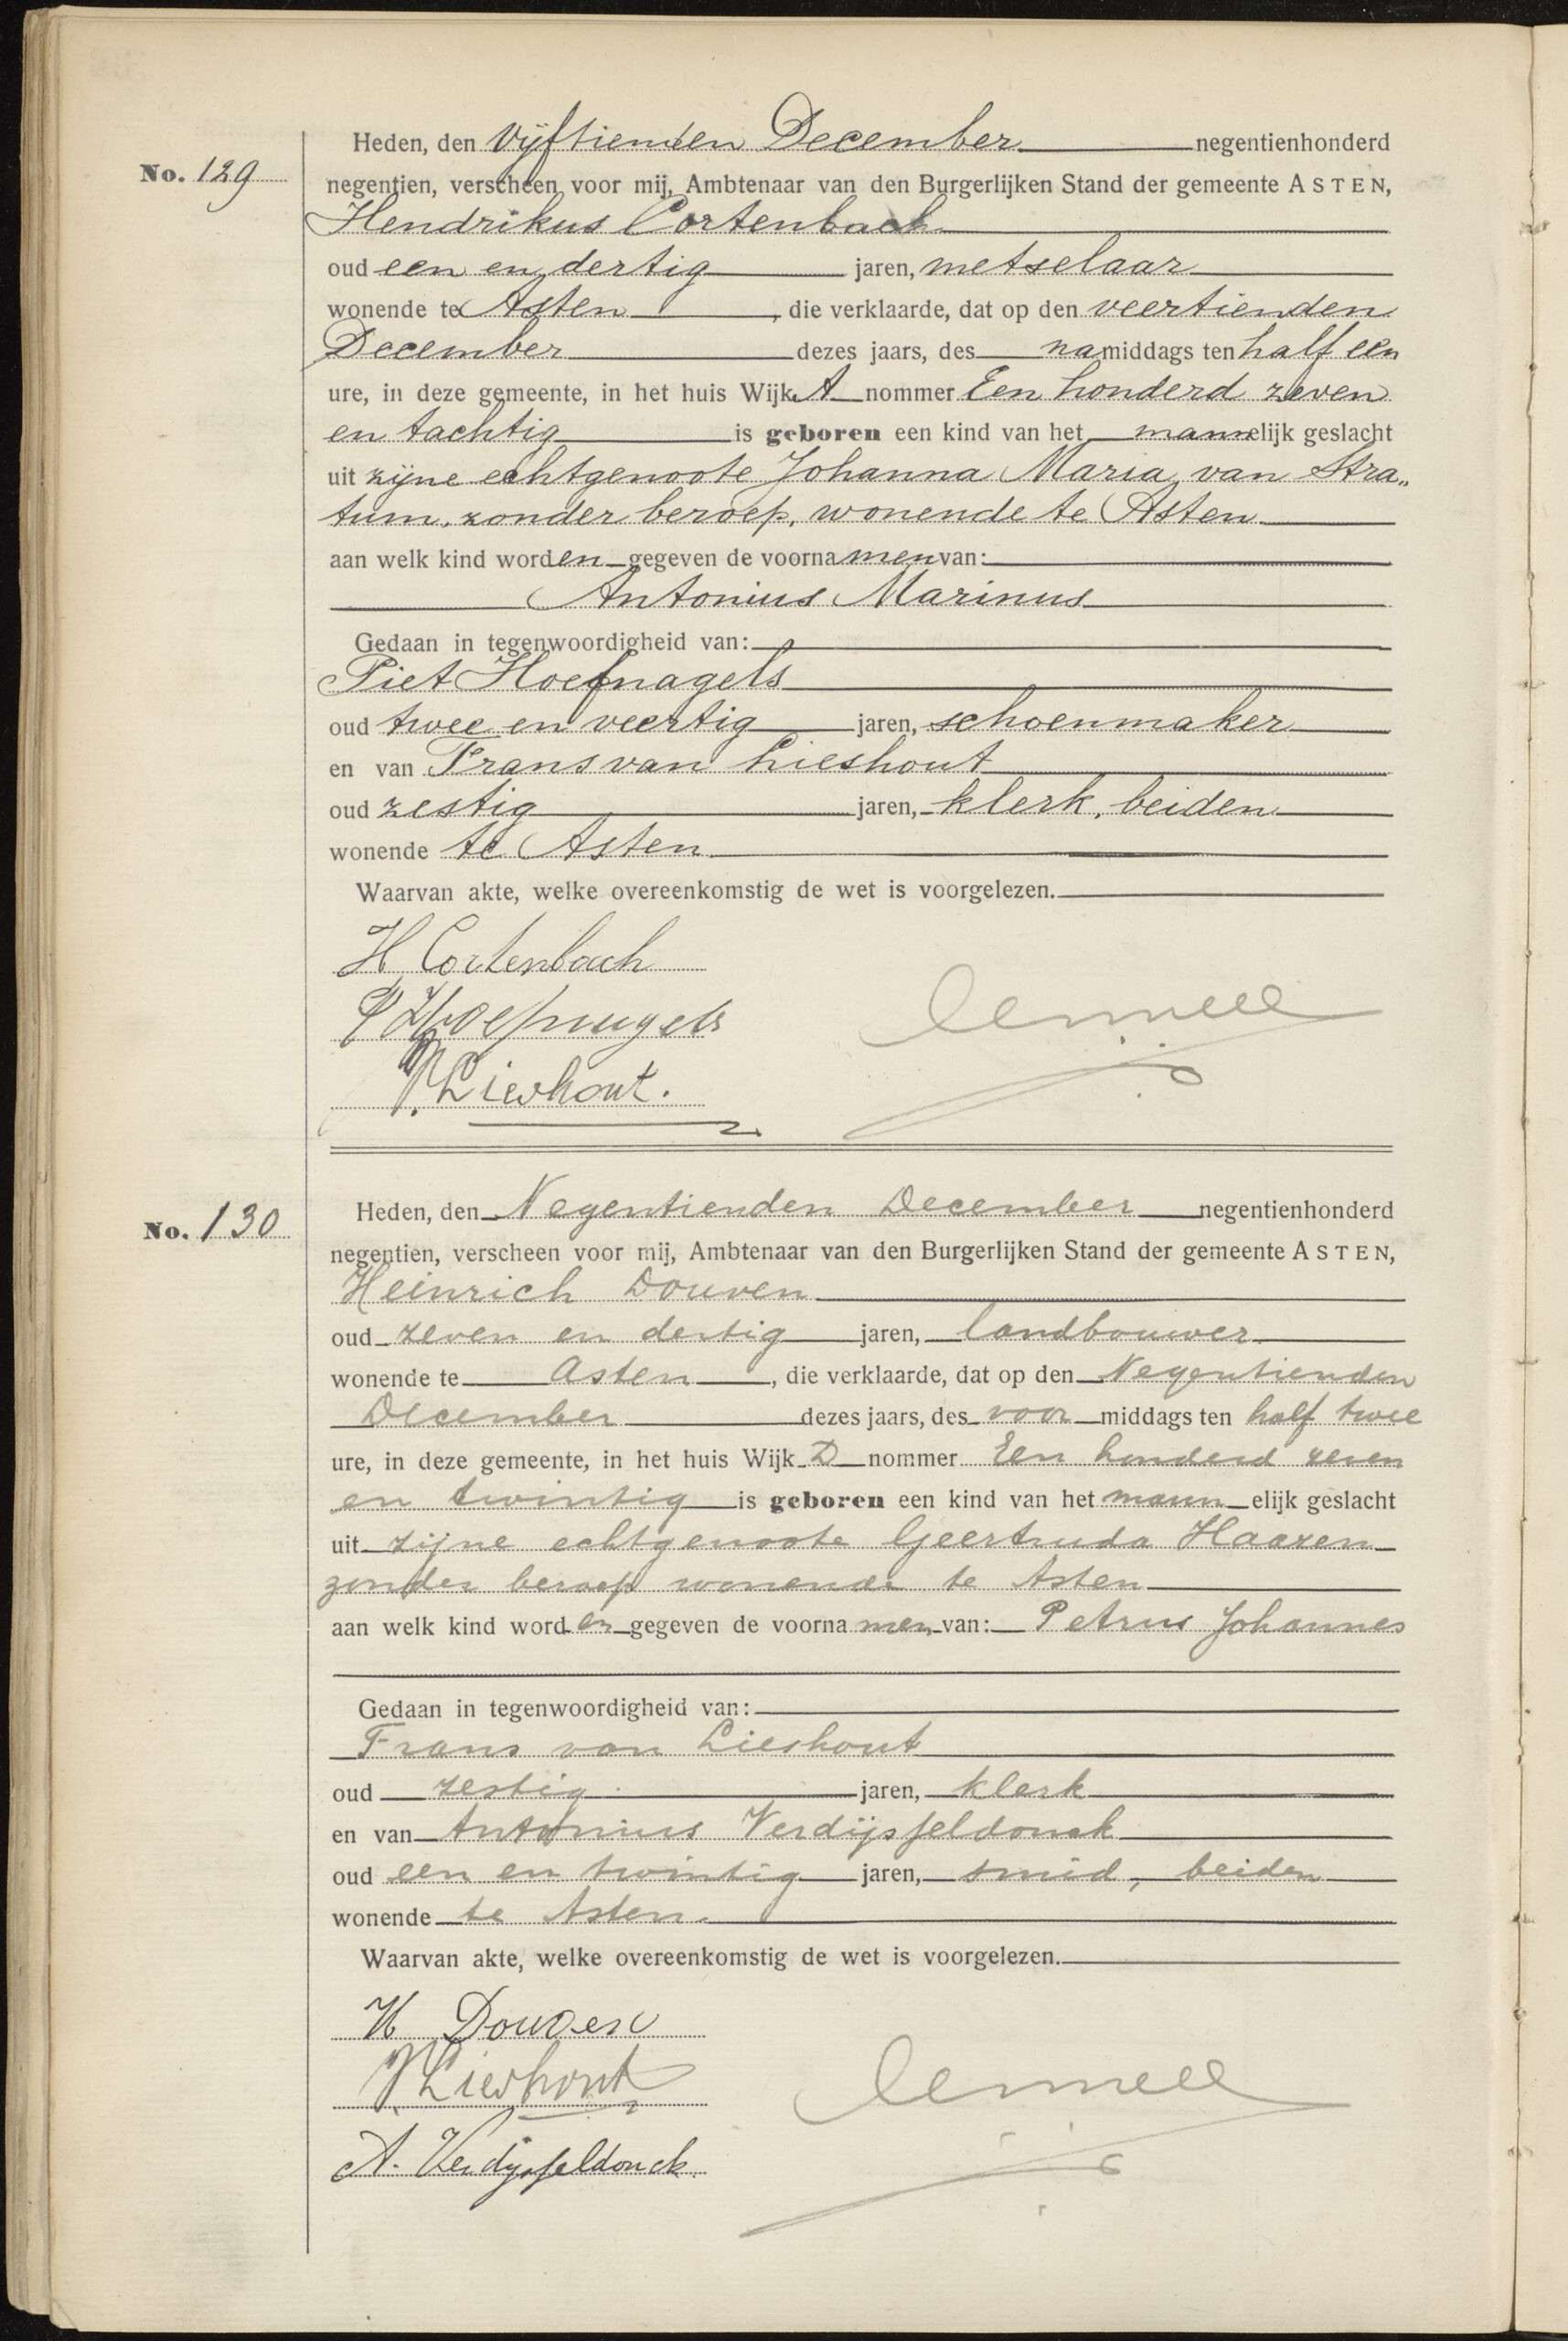 No. 129
Heden, den vijftienden December negentienhonderd
negentien, verscheen voor mij, Ambtenaar van den Burgerlijken Stand der gemeente ASTEN,
Hendrikus Cortenbach
oud een en dertig jaren, metselaar
wonende te Asten, die verklaarde, dat op den veertienden
December dezes jaars, des namiddags ten half een
ure, in deze gemeente, in het huis Wijk A nommer Een honderd zeven
en tachtig is geboren een kind van het mannelijk geslacht
uit zijne echtgenoote Johanna Maria van Stra„
tum, zonder beroep, wonende te Asten
aan welk kind worden gegeven de voornamen van:
Antonius Marinus
Gedaan in tegenwoordigheid van:
Piet Hoefnagels
oud twee en veertig jaren, schoenmaker
en van Frans van Lieshout
oud zestig jaren, klerk, beiden
wonende te Asten
Waarvan akte, welke overeenkomstig de wet is voorgelezen.
H Cortenbach
P Hoefnagels
Lieshout.
No. 130
Heden, den Negentienden December negentienhonderd
negentien, verscheen voor mij, Ambtenaar van den Burgerlijken Stand der gemeente ASTEN,
Heinrich Douven
oud zeven en dertig jaren, landbouwer
wonende te Asten, die verklaarde, dat op den Negentienden
December dezes jaars, des voormiddags ten half twee
ure, in deze gemeente, in het huis Wijk D nommer Een honderd zeven
en twintig is geboren een kind van het mannelijk geslacht
uit zijne echtgenoote Geertruda Haazen
zonder beroep wonende te Asten
aan welk kind worden gegeven de voornamen van: Petrus Johannes
Gedaan in tegenwoordigheid van:
Frans van Lieshout
oud zestig jaren, klerk
en van Antonius Verdijsseldonck
oud een en twintig jaren, smid, beiden
wonende te Asten.
Waarvan akte, welke overeenkomstig de wet is voorgelezen.
H Douven
Lieshout
A. Verdijsseldonck